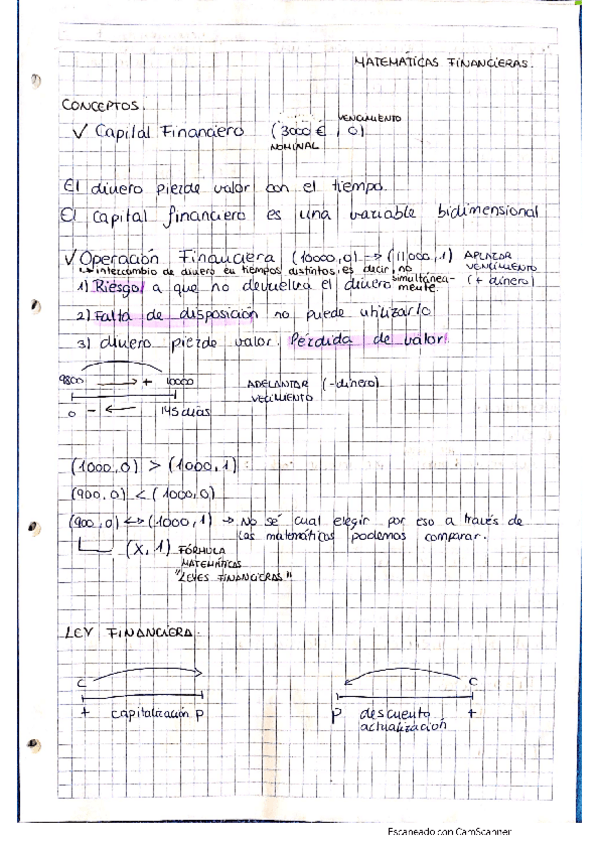 MATEMÁTICAS FINANCIERAS.
CONCEPTOS.
VENCIMIENTO
✓ Capital Financiero (3000 €, 0)
NOMINAL
El dinero pierde valor con el tiempo.
El capital financiero es una variable bidimensional
✓ Operación Financiera (10000,0) → (11000,1) APLAZAR VENCIMIENTO (+ dinero)
↳ intercambio de dinero en tiempos distintos, es decir, no simultáneamente.
1) Riesgo a que no devuelva el dinero
2) Falta de disposición no puede utilizarlo
3) dinero pierde valor. Pérdida de valor
9800 → + 10000 ADELANTAR (-dinero)
VECIMIENTO
0 - ← 145 días
(1000,0) > (1000,1)
(900,0) < (1000,0)
(900,0) ↔ (1000,1) → No sé cual elegir por eso a través de
las matemáticas podemos comparar.
(X,1) FÓRMULA
MATEMÁTICAS
"LEYES FINANCIERAS"
LEY FINANCIERA.
C C
t capitalización p p descuento t
actualización
Escaneado con CamScanner